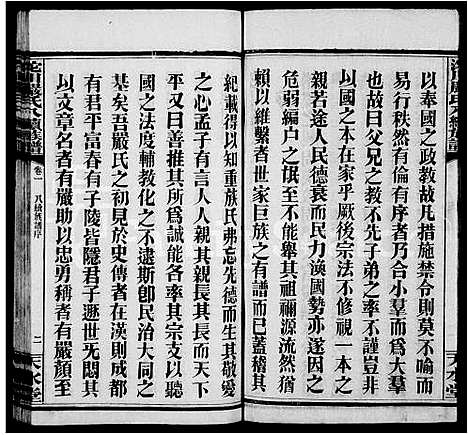 以奉國之政教故凡措施禁令則莫不喻而
易行秩然有倫有序者乃合小羣而爲大羣
也故曰父兄之教不先子弟之率不謹豈非
國之本在家乎厥後宗法不修視一本之
親若途人民德衰而民力渙國勢亦因之
危弱編戶之氓有不能舉其祖禰源流然猶
賴以維繫者世家巨族之有譜而已蓋稽其
紀載得以知重族氏弗忘先德而生其敬愛
之心孟子有言人人親其親長其長而天下
平又曰善推其所爲誠能各率其宗支以聽
國之法度輔教化之不逮斯卽民治大興之
基矣嚴氏之初見於史傳者在漢則成都
有君平富春有子陵皆隱君子遯世无悶
以文章名者有嚴助以忠勇稱者有嚴顏至
卷一
八續族譜序
二
天水堂